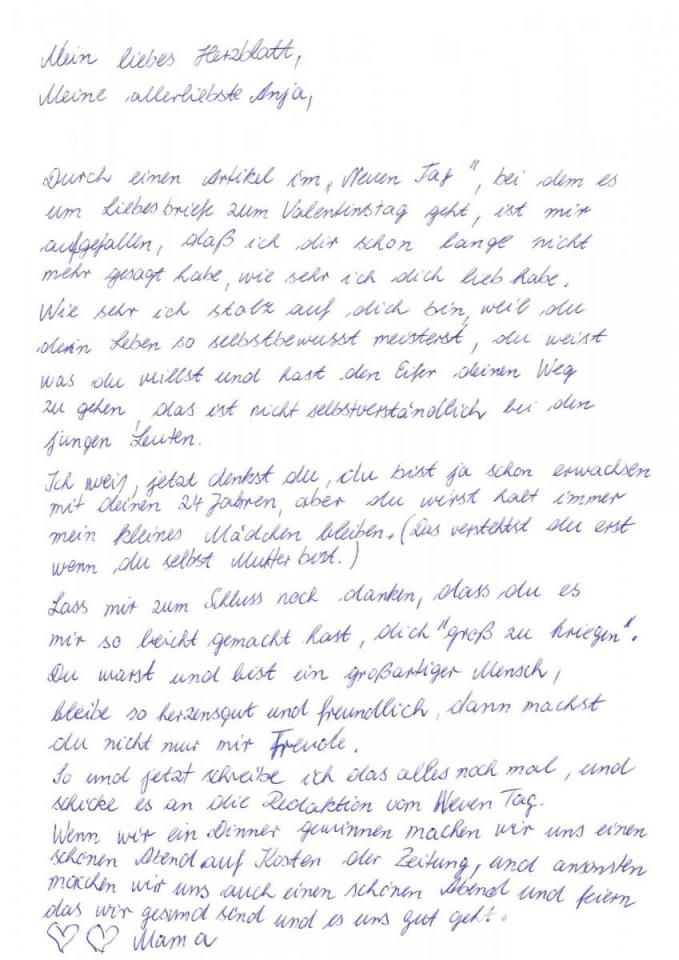 Mein liebes Herzblatt,
Meine allerliebste Anja,
Durch einen Artikel im „Neuen Tag", bei dem es
um Liebesbriefe zum Valentinstag geht, ist mir
aufgefallen, daß ich dir schon lange nicht
mehr gesagt habe, wie sehr ich dich lieb habe.
Wie sehr ich stolz auf dich bin, weil du
dein Leben so selbstbewusst meisterst, du weist
was du willst und hast den Eifer deinen Weg
zu gehen, das ist nicht selbstverständlich bei den
jungen Leuten.
Ich weiß, jetzt denkst du, du bist ja schon erwachsen
mit deinen 24 Jahren, aber du wirst halt immer
mein kleines Mädchen bleiben. (Das verstehtst du erst
wenn du selbst Mutter bist.)
Lass mir zum Schluss noch danken, dass du es
mir so leicht gemacht hast, dich "groß zu kriegen".
Du warst und bist ein großartiger Mensch,
bleibe so herzensgut und freundlich, dann machst
du nicht nur mir Freude.
So und jetzt schreibe ich das alles noch mal, und
schicke es an die Redaktion vom Neuen Tag.
Wenn wir ein Dinner gewinnen machen wir uns einen
schönen Abend auf Kosten der Zeitung, und ansonsten
machen wir uns auch einen schönen Abend und feiern
das wir gesund sind und es uns gut geht.
♡ ♡ Mama